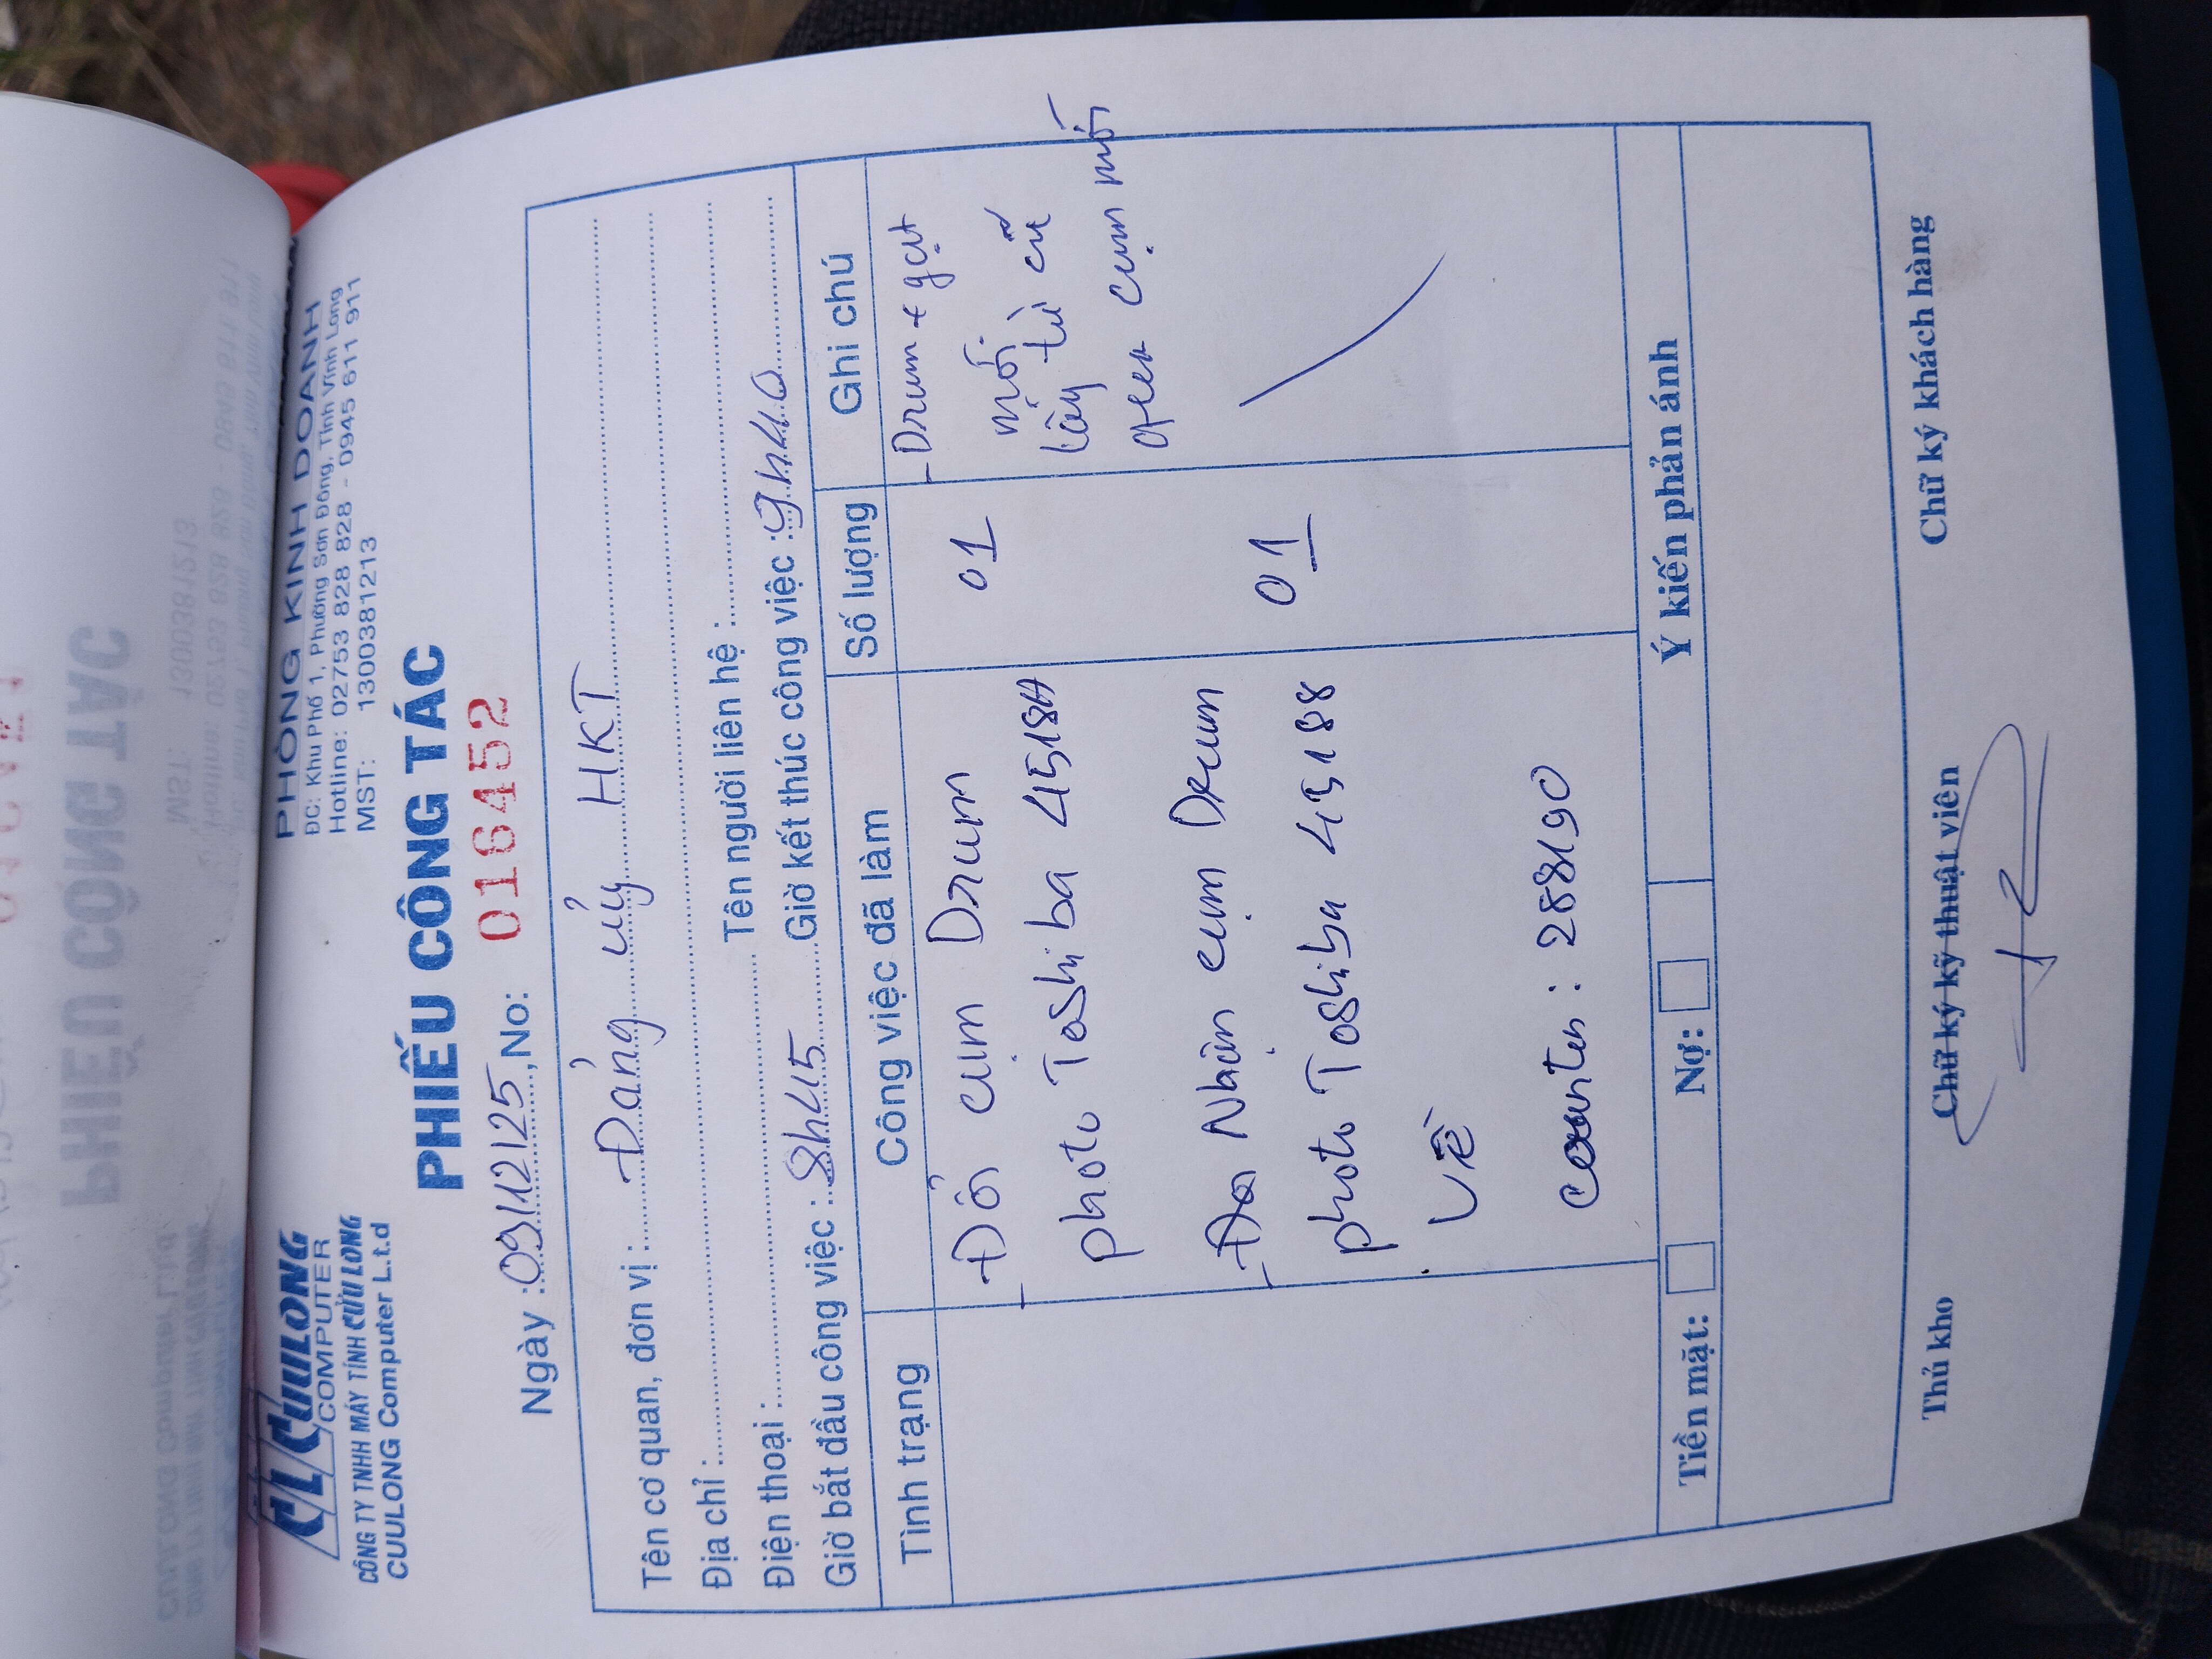 CL CUULONG
COMPUTER
CÔNG TY TNHH MÁY TÍNH CỬU LONG
CUULONG Computer L.t.d
PHÒNG KINH DOANH
ĐC: Khu Phố 1, Phường Sơn Đông, Tỉnh Vĩnh Long
Hotline: 02753 828 828 - 0945 611 911
MST: 1300381213
PHIẾU CÔNG TÁC
Ngày : 09/12/25, No: 016452
Tên cơ quan, đơn vị : Đảng ủy HKT
Địa chỉ :
Điện thoại : Tên người liên hệ :
Giờ bắt đầu công việc : 8h45 Giờ kết thúc công việc : 9h40
Tình trạng Công việc đã làm Số lượng Ghi chú
- Đổi cụm Drum 01 - Drum + gạt
photo Toshiba 4518A mới.
lấy từ cũ
qua cụm mới
- Nhận cụm Drum 01
photo Toshiba 4518
về
counter : 288190
Tiền mặt: Nợ: Ý kiến phản ánh
Thủ kho Chữ ký kỹ thuật viên Chữ ký khách hàng